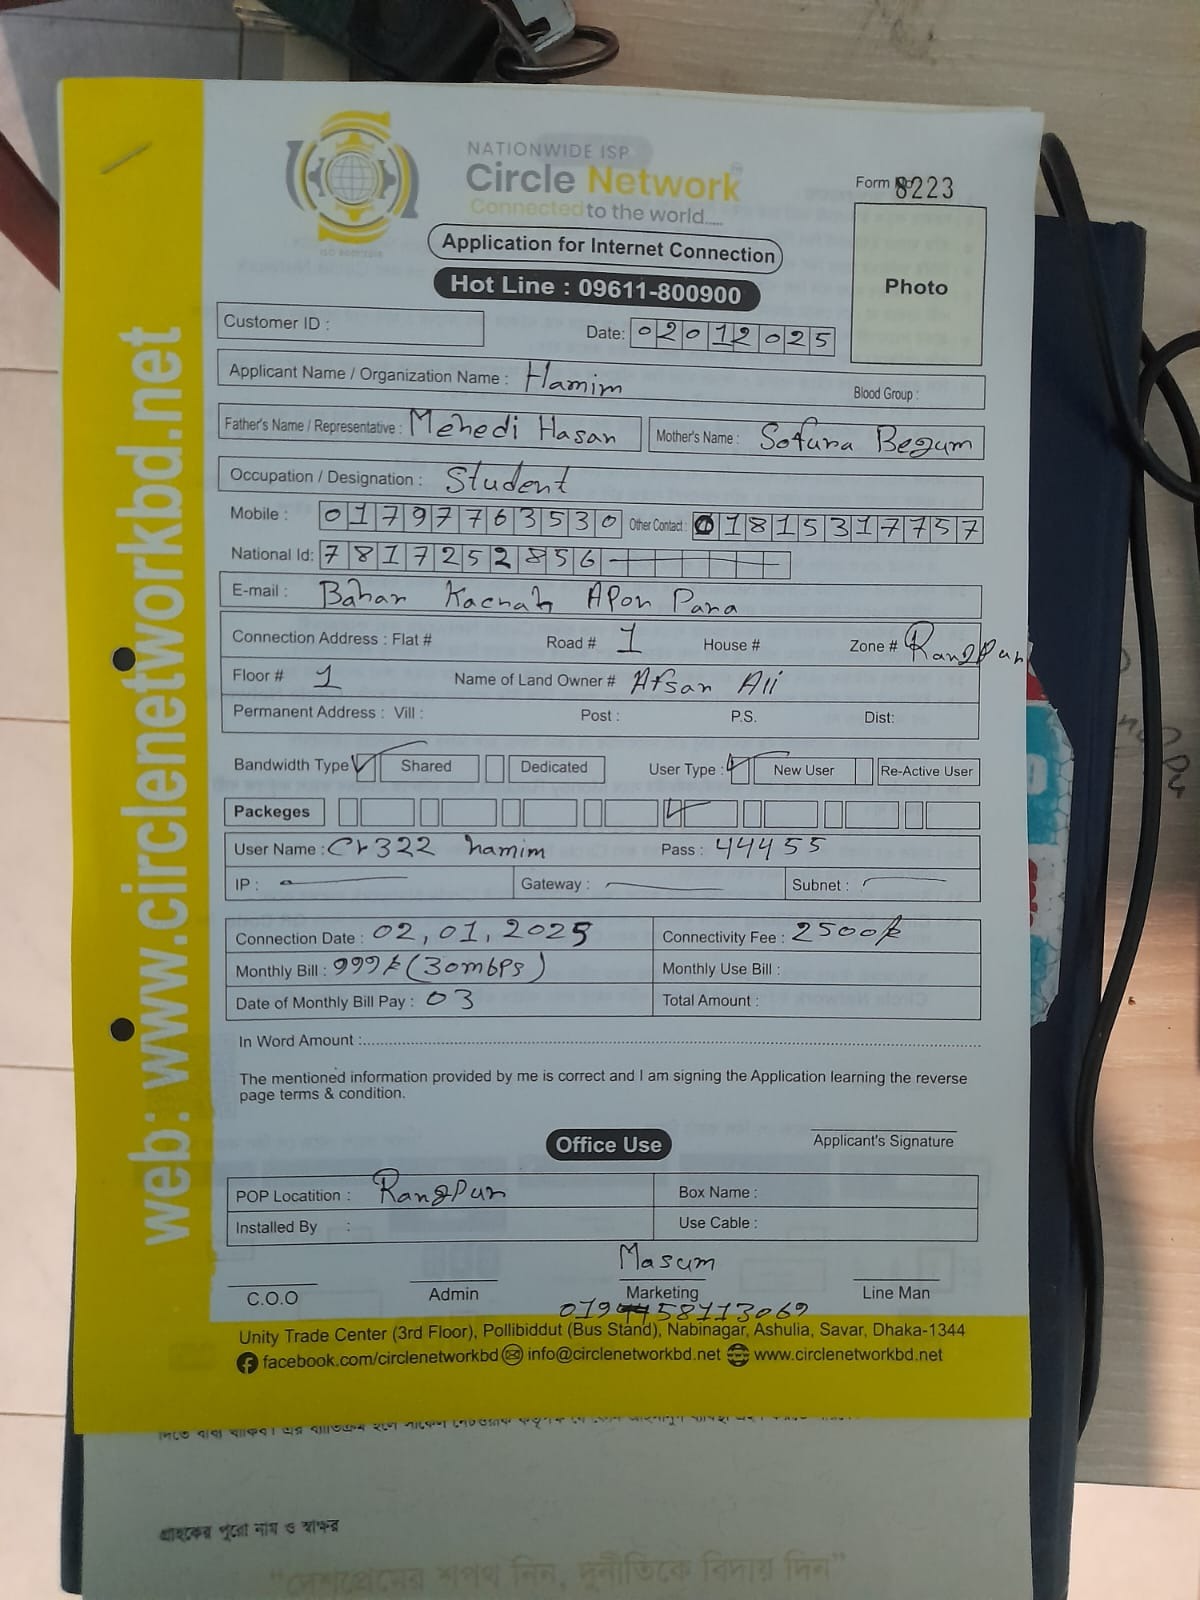 NATIONWIDE ISP
Circle Network
Connected to the world.....
Form No 8223
Application for Internet Connection
Hot Line : 09611-800900
Photo
Customer ID :
Date: 02012025
Applicant Name / Organization Name : Hamim Blood Group :
Father's Name / Representative : Mehedi Hasan Mother's Name : Sofura Begum
Occupation / Designation : Student
Mobile : 01797763530 Other Contact : 01815317757
National Id: 7817252856
E-mail : Bahar Kachab Apon Para
Connection Address : Flat # Road # 1 House # Zone # Rangpur
Floor # 1 Name of Land Owner # Afsar Ali
Permanent Address : Vill : Post : P.S. Dist:
Bandwidth Type Shared Dedicated User Type : New User Re-Active User
Packeges
User Name : Cr322 hamim Pass : 44455
IP : Gateway : Subnet :
Connection Date : 02,01,2025 Connectivity Fee : 2500/
Monthly Bill : 999/ (30mbps) Monthly Use Bill :
Date of Monthly Bill Pay : 03 Total Amount :
In Word Amount :
The mentioned information provided by me is correct and I am signing the Application learning the reverse
page terms & condition.
Office Use
Applicant's Signature
POP Locatition : Rangpur Box Name :
Installed By : Use Cable :
Masum
C.O.O Admin Marketing Line Man
Unity Trade Center (3rd Floor), Pollibiddut (Bus Stand), Nabinagar, Ashulia, Savar, Dhaka-1344
facebook.com/circlenetworkbd info@circlenetworkbd.net www.circlenetworkbd.net
web: www.circlenetworkbd.net
গ্রাহকের পুরো নাম ও স্বাক্ষর
"দেশপ্রেমের শপথ নিন, দুর্নীতিকে বিদায় দিন"